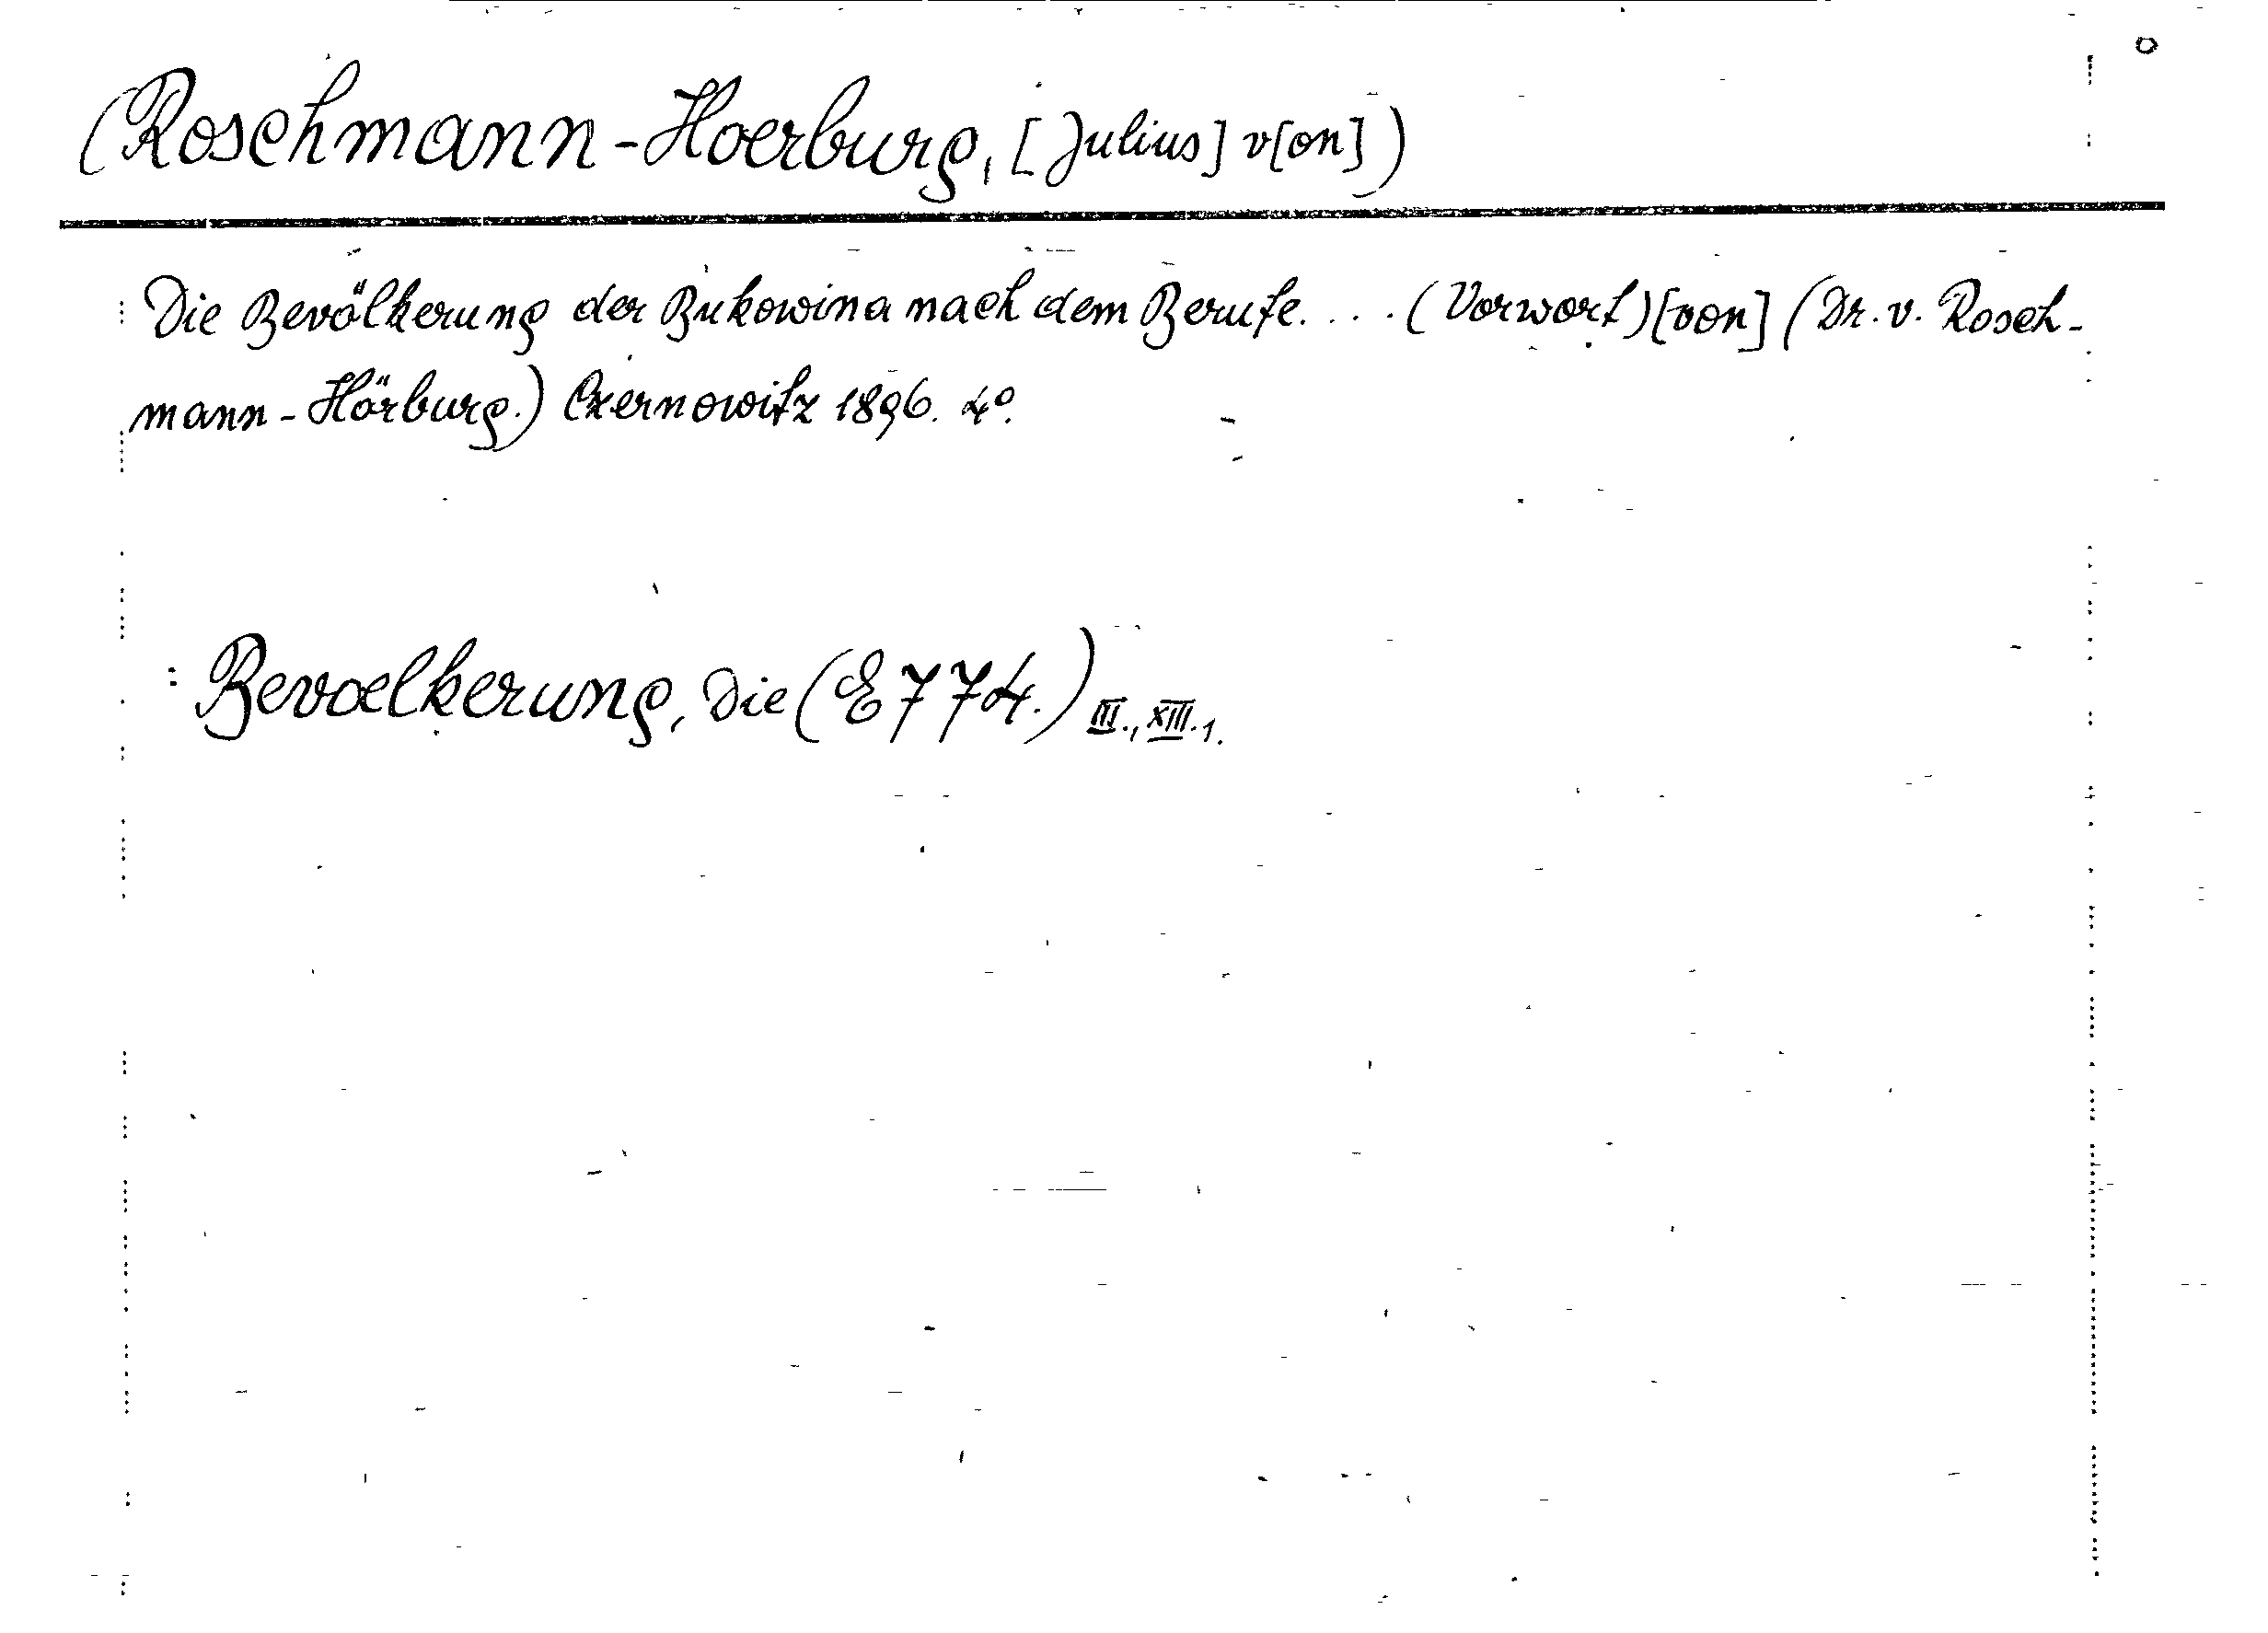 (Roschmann-Hoerburg, [Julius] v[on])
Die Bevölkerung der Bukowina nach dem Berufe. . . . (Vorwort) [von] (Dr. v. Rosch-
mann-Hörburg.) Czernowitz 1896. 4º.
: Bevoelkerung, Die (E 774.) III., XIII. 1.